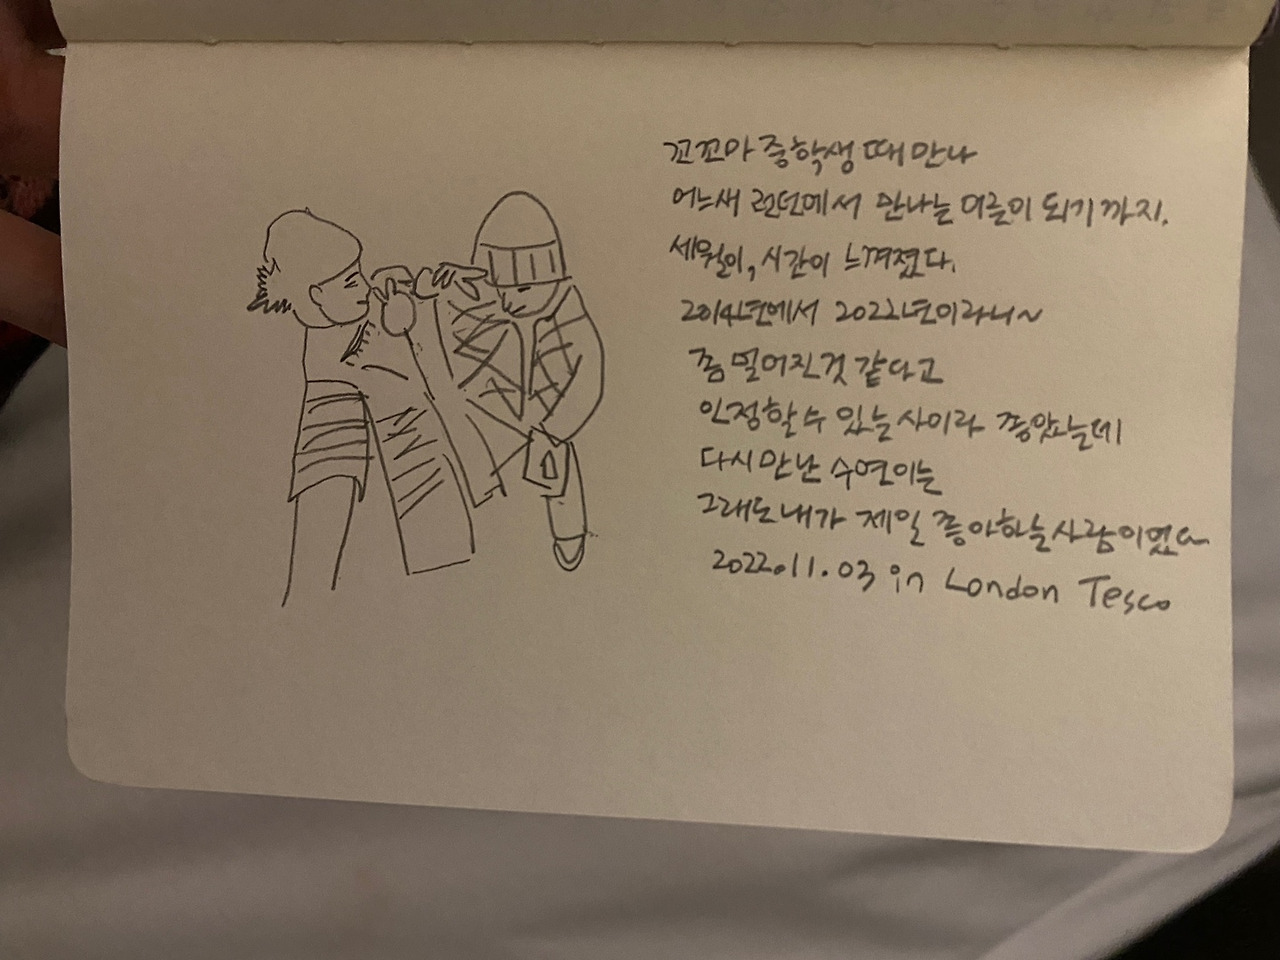 꼬꼬마 중학생 때 만나
어느새 런던에서 만나는 어른이 되기까지.
세월이, 시간이 느껴졌다.
2014년에서 2022년이라니~
좀 멀어진것 같다고
인정할 수 있는 사이라 좋았는데
다시 만난 수연이는
그래도 내가 제일 좋아하는 사람이였다
2022.11.03 in London Tesco